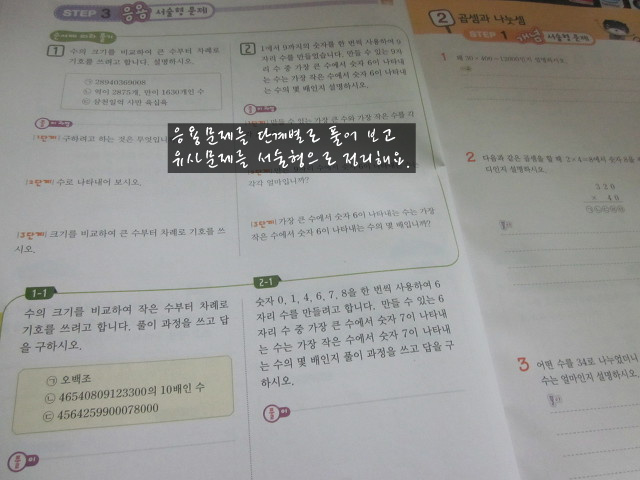 STEP 3 응용 서술형 문제
1 수의 크기를 비교하여 큰 수부터 차례로
기호를 쓰려고 합니다. 설명하시오.
㉠ 28940369008
㉡ 억이 2875개, 만이 1630개인 수
㉢ 삼천일억 사만 육십육
1단계 구하려고 하는 것은 무엇입니
2단계 수로 나타내어 보시오.
3단계 크기를 비교하여 큰 수부터 차례로 기호를 쓰
시오.
2 1에서 9까지의 숫자를 한 번씩 사용하여 9
자리 수를 만들었습니다. 만들 수 있는 9자
리 수 중 가장 큰 수에서 숫자 6이 나타내
는 수는 가장 작은 수에서 숫자 6이 나타내
는 수의 몇 배인지 설명하시오.
1단계 만들 수 있는 가장 큰 수와 가장 작은 수를 각
각각 얼마입니까?
3단계 가장 큰 수에서 숫자 6이 나타내는 수는 가장
작은 수에서 숫자 6이 나타내는 수의 몇 배입니까?
응용문제를 단계별로 풀어 보고
유사문제를 서술형으로 정리해요.
1-1
수의 크기를 비교하여 작은 수부터 차례로
기호를 쓰려고 합니다. 풀이 과정을 쓰고 답
을 구하시오.
㉠ 오백조
㉡ 46540809123300의 10배인 수
㉢ 4564259900078000
풀이
2-1
숫자 0, 1, 4, 6, 7, 8을 한 번씩 사용하여 6
자리 수를 만들려고 합니다. 만들 수 있는 6
자리 수 중 가장 큰 수에서 숫자 7이 나타내
는 수는 가장 작은 수에서 숫자 7이 나타내
는 수의 몇 배인지 풀이 과정을 쓰고 답을 구
하시오.
풀이
2 곱셈과 나눗셈
STEP 1 개념 서술형 문제
1
2 다음과 같은 곱셈을 할 때 2×4=8에서 8을
디인지 설명하시오.
520
× 40
3 어떤 수를 34로 나누었더니
수는 얼마인지 설명하시오.